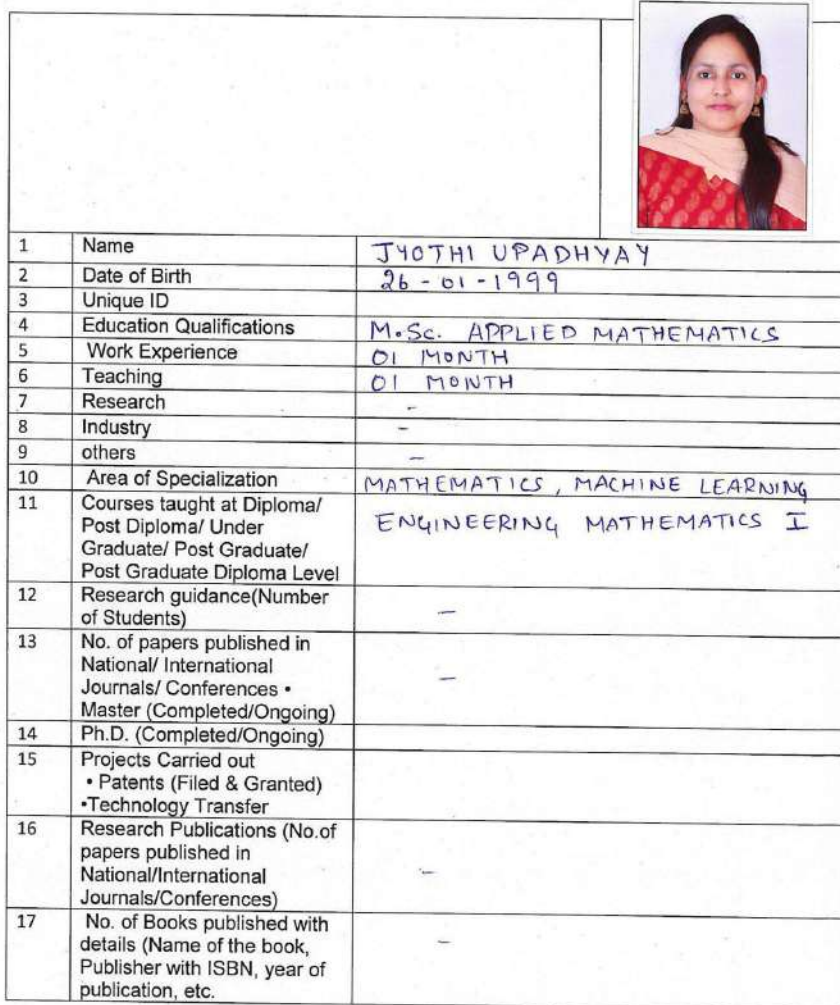 1 Name JYOTHI UPADHYAY
2 Date of Birth 26-01-1999
3 Unique ID
4 Education Qualifications M.Sc. APPLIED MATHEMATICS
5 Work Experience 01 MONTH
6 Teaching 01 MONTH
7 Research -
8 Industry -
9 others -
10 Area of Specialization MATHEMATICS, MACHINE LEARNING
11 Courses taught at Diploma/ ENGINEERING MATHEMATICS I
Post Diploma/ Under
Graduate/ Post Graduate/
Post Graduate Diploma Level
12 Research guidance(Number -
of Students)
13 No. of papers published in -
National/ International
Journals/ Conferences •
Master (Completed/Ongoing)
14 Ph.D. (Completed/Ongoing)
15 Projects Carried out
• Patents (Filed & Granted)
•Technology Transfer
16 Research Publications (No.of -
papers published in
National/International
Journals/Conferences)
17 No. of Books published with -
details (Name of the book,
Publisher with ISBN, year of
publication, etc.